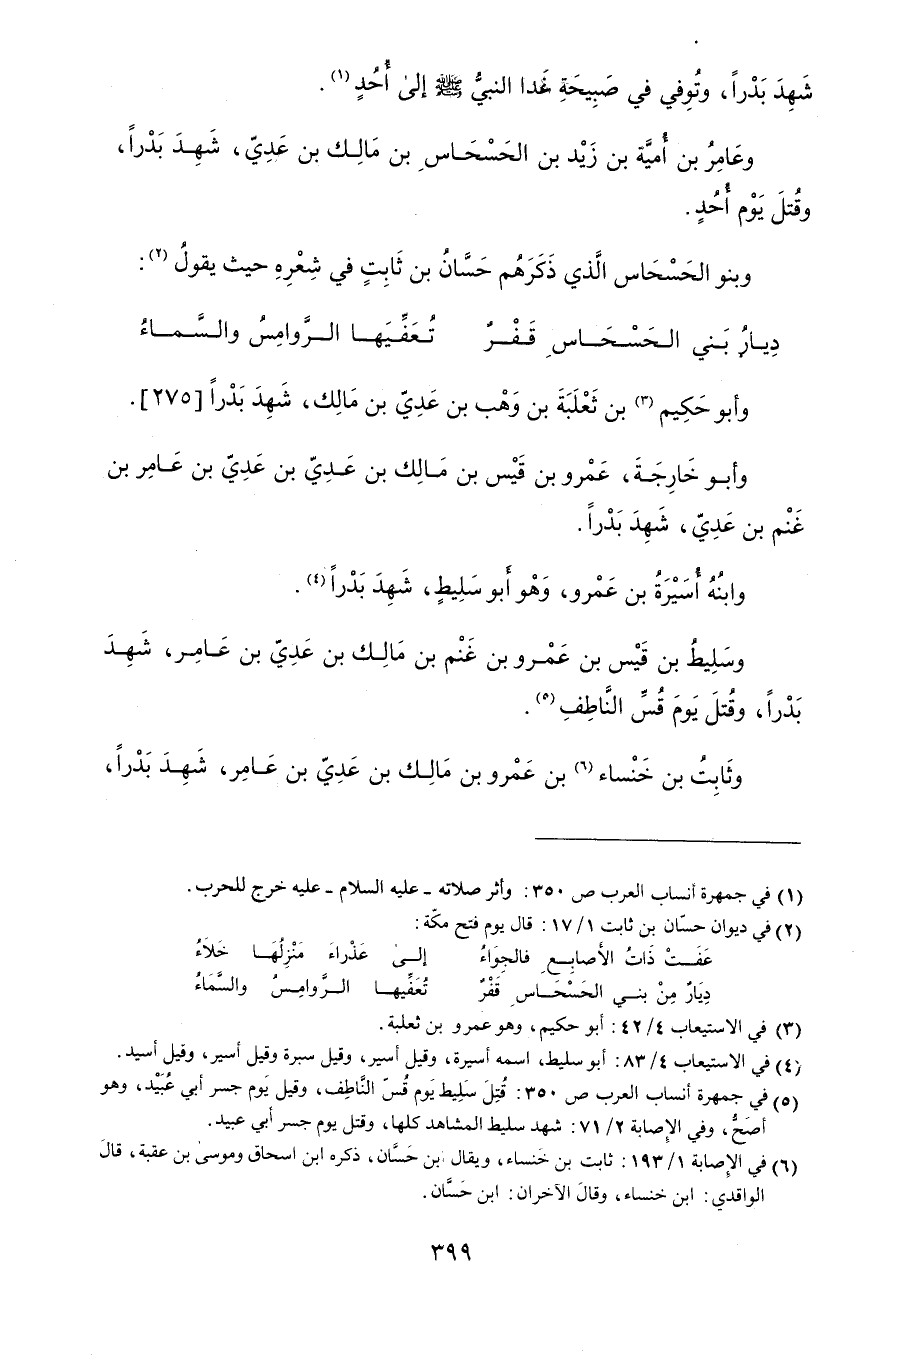 شَهِدَ بَدْراً، وتُوفي في صَبِيحَةِ غَدا النبيُّ ﷺ إلىٰ أُحُدٍ (١).
وعَامِرُ بن أُميَّة بن زَيْد بن الحَسْحَاسِ بن مَالِك بن عَدِيّ، شَهِدَ بَدْراً،
وقُتلَ يَوْم أُحُدٍ.
وبنو الحَسْحَاس الَّذي ذَكَرَهُم حَسَّانُ بن ثَابِتٍ في شِعْرِهِ حيث يقولُ (٢):
دِيـارُ بَـني الـحَسْـحَـاسِ قَـفْـرٌ تُـعَـفِّـيَـهـا الـرَّوامِسُ والسَّـمـاءُ
وأبو حَكِيم (٣) بن ثَعْلَبَةَ بن وَهْب بن عَدِيّ بن مَالِك، شَهِدَ بَدْراً [٢٧٥].
وأبـو خَارِجَـةَ، عَمْرو بن قَيْس بن مَـالِك بن عَـدِيّ بن عَدِيّ بن عَـامِر بن
غَنْم بن عَدِيّ، شَهِدَ بَدْراً.
وابنُهُ أُسَيْرَةُ بن عَمْرو، وَهْو أَبو سَلِيطٍ، شَهِدَ بَدْراً (٤).
وسَلِيطُ بن قَيْس بن عَمْـرو بن غَنْم بن مَالِـك بن عَدِيّ بن عَـامِـر، شَهِـدَ
بَدْراً، وقُتلَ يَومَ قُسِّ النَّاطِفِ (٥).
وثَابِتُ بن خَنْساء (٦) بن عَمْرو بن مَالِـك بن عَدِيّ بن عَـامِر، شَهِـدَ بَدْراً،
(١) في جمهرة أنساب العرب ص ٣٥٠: وأثر صلاته ـ عليه السلام ـ عليه خرج للحرب.
(٢) في ديوان حسّان بن ثابت ١/ ١٧: قال يوم فتح مكّة:
عَفَـتْ ذَاتُ الأصابِـعِ فالجِوَاءُ إلـىٰ عَذْراءَ مَنْزِلُهَـا خَلَاءُ
دِيَارٌ مِنْ بنـي الحَسْحَـاسِ قَفْرٌ تُعَفِّيهـا الـرَّوامِسُ والسَّمَاءُ
(٣) في الاستيعاب ٤/ ٤٢: أبو حكيم، وهو عمرو بن ثعلبة.
(٤) في الاستيعاب ٤/ ٨٣: أبو سليط، اسمه أسيرة، وقيل أسير، وقيل سبرة وقيل أسير، وقيل أسيد.
(٥) في جمهرة أنساب العرب ص ٣٥٠: قُتِلَ سَلِيط يَوم قُسّ النَّاطِف، وقيل يَوم جسر أبي عُبَيْد، وهو
أصَحُّ، وفي الإصابة ٢/ ٧١: شهد سليط المشاهد كلها، وقتل يوم جسر أبي عبيد.
(٦) في الإصابة ١/ ١٩٣: ثابت بن خنساء، ويقال ابن حَسَّان، ذكره ابن اسحاق وموسىٰ بن عقبة، قالَ
الواقدي: ابن خنساء، وقالَ الآخران: ابن حَسَّان.
٣٩٩